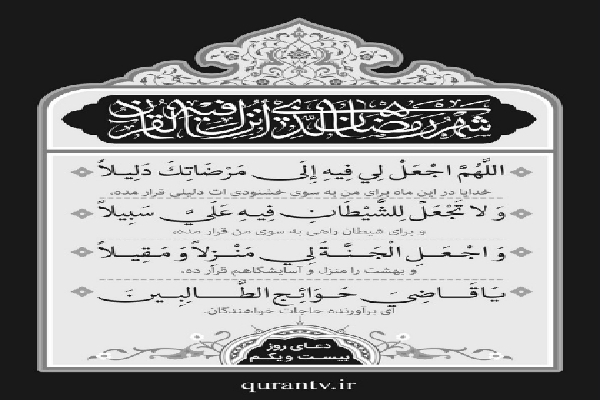 شَهْرُ رَمَضَانَ الَّذِي أُنْزِلَ فِيهِ الْقُرْآنُ
اللَّهُمَّ اجْعَلْ لِي فِيهِ إِلَى مَرْضَاتِكَ دَلِيلاً
خدایا در این ماه برای من به سوی خشنودی ات دلیلی قرار مده،
وَ لا تَجْعَلْ لِلشَّيْطَانِ فِيهِ عَلَيَّ سَبِيلاً
و برای شیطان راهی به سوی من قرار مده،
وَ اجْعَلِ الْجَنَّةَ لِي مَنْزِلاً وَ مَقِيلاً
و بهشت را منزل و آسایشگاهم قرار ده،
يَا قَاضِيَ حَوَائِجِ الطَّالِبِينَ
ای برآورنده حاجات خواهندگان.
دعای روز
بیست و یکم
qurantv.ir